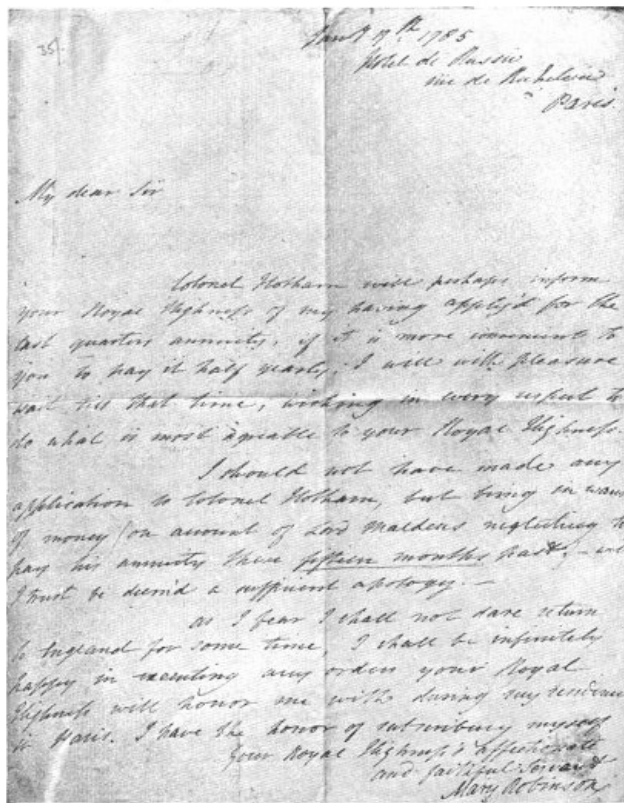 35
Jan'y 17th 1785
Hotel de Russie
rue de Richelieu
Paris.
My dear Sir
Colonel Hotham will perhaps inform
your Royal Highness of my having applyd for the
last quarters annuity, if it is more convenient to
you to pay it half yearly, I will with pleasure
wait till that time, wishing in every respect to
do what is most agreable to your Royal Highness.
I should not have made any
application to Colonel Hotham, but being in want
of money (on account of Lord Maldens neglecting to
pay his annuity these fifteen months past; — will
I trust be deem'd a sufficient apology. —
as I fear I shall not dare return
to England for some time, I shall be infinitely
happy in executing any orders your Royal
Highness will honor me with during my residence
in Paris. I have the honor of subscribing myself
Your Royal Highness's affectionate
and faithful Servant
Mary Robinson